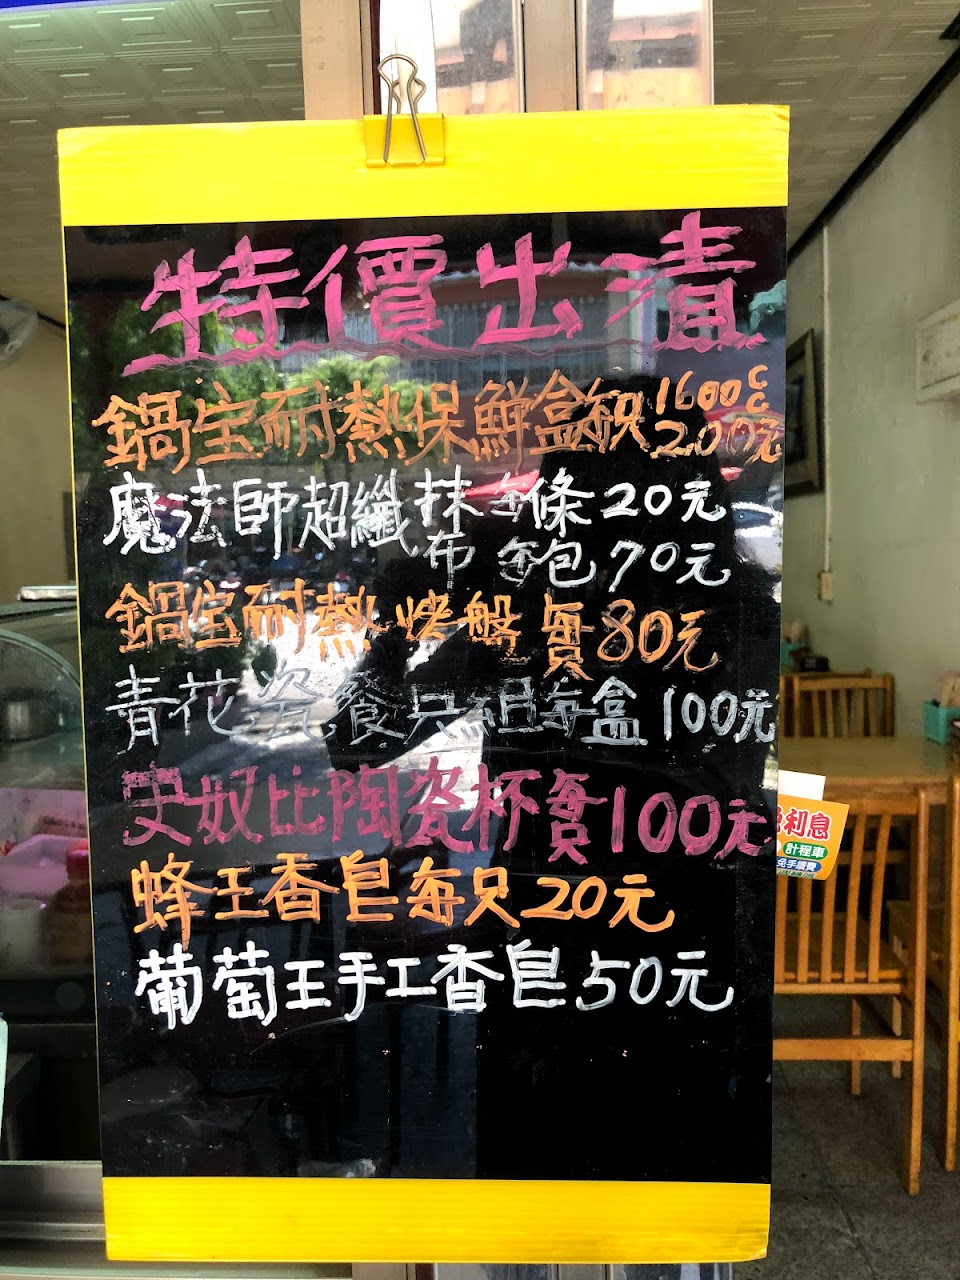 特價出清
鍋宝耐熱保鮮盒組 1600C.C
200元
魔法師超纖抹布 每條20元
每包70元
鍋宝耐熱烤盤 每個80元
青花瓷餐具組每盒100元
史奴比陶瓷杯每個100元
蜂王香皂每只20元
葡萄王手工香皂50元
利息
計程車
免手續費